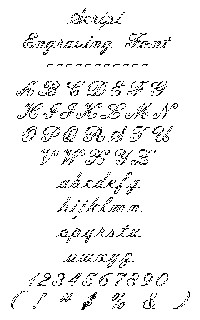 Script
Engraving Font
-----------
A B C D E F G
H I J K L M N
O P Q R S T U
V W X Y Z
abcdefg
hijklmn
opqrstu
vwxyz
1234567890
( ! # $ % & )